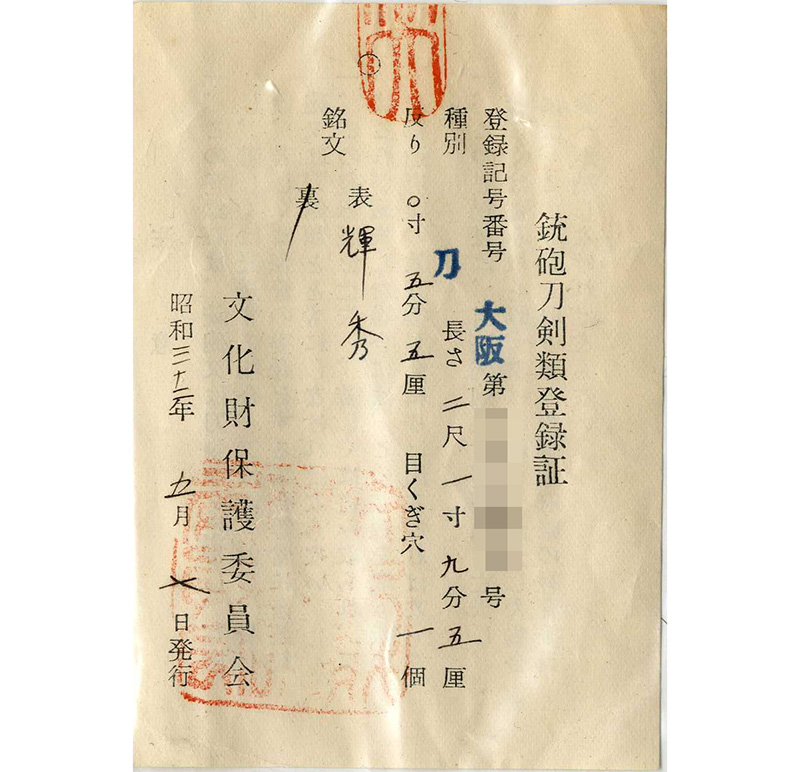 銃砲刀剣類登録証
登録記号番号 大阪 第 号
種別 刀 長さ 二尺一寸九分五厘
反り 〇寸五分五厘 目くぎ穴 一個
銘文 表 輝秀
裏
文化財保護委員会
昭和三十二年 五月 七日発行